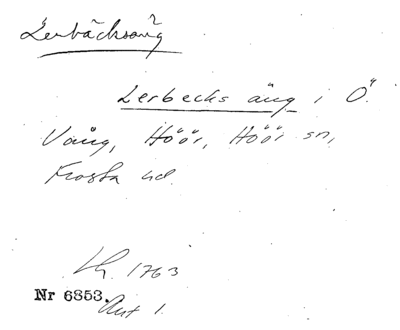 Lerbäcksäng
Lerbecks äng i Ö.
Vång, Höör, Höör sn,
Frosta hd.
Lh. 1763
Nr 6853.
Akt 1.